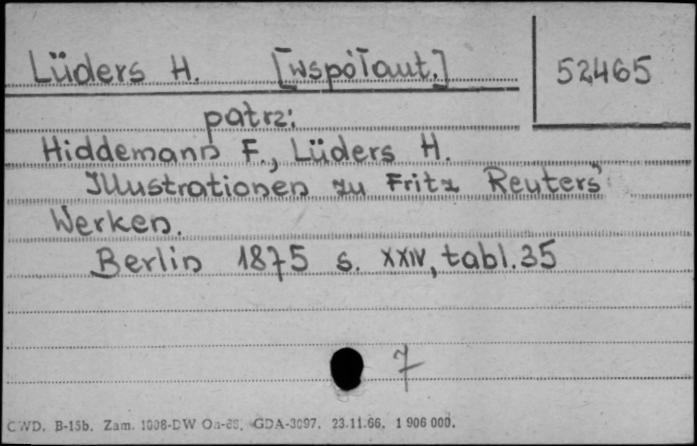 Lüders H. [współaut.]
52465
patrz:
Hiddemann F., Lüders H.
Illustrationen zu Fritz Reuters
Werken.
Berlin 1875 s. XXIV, tabl. 35
7
CWD. B-15b. Zam. GDA-3097. 23.11.66. 1 906 000.